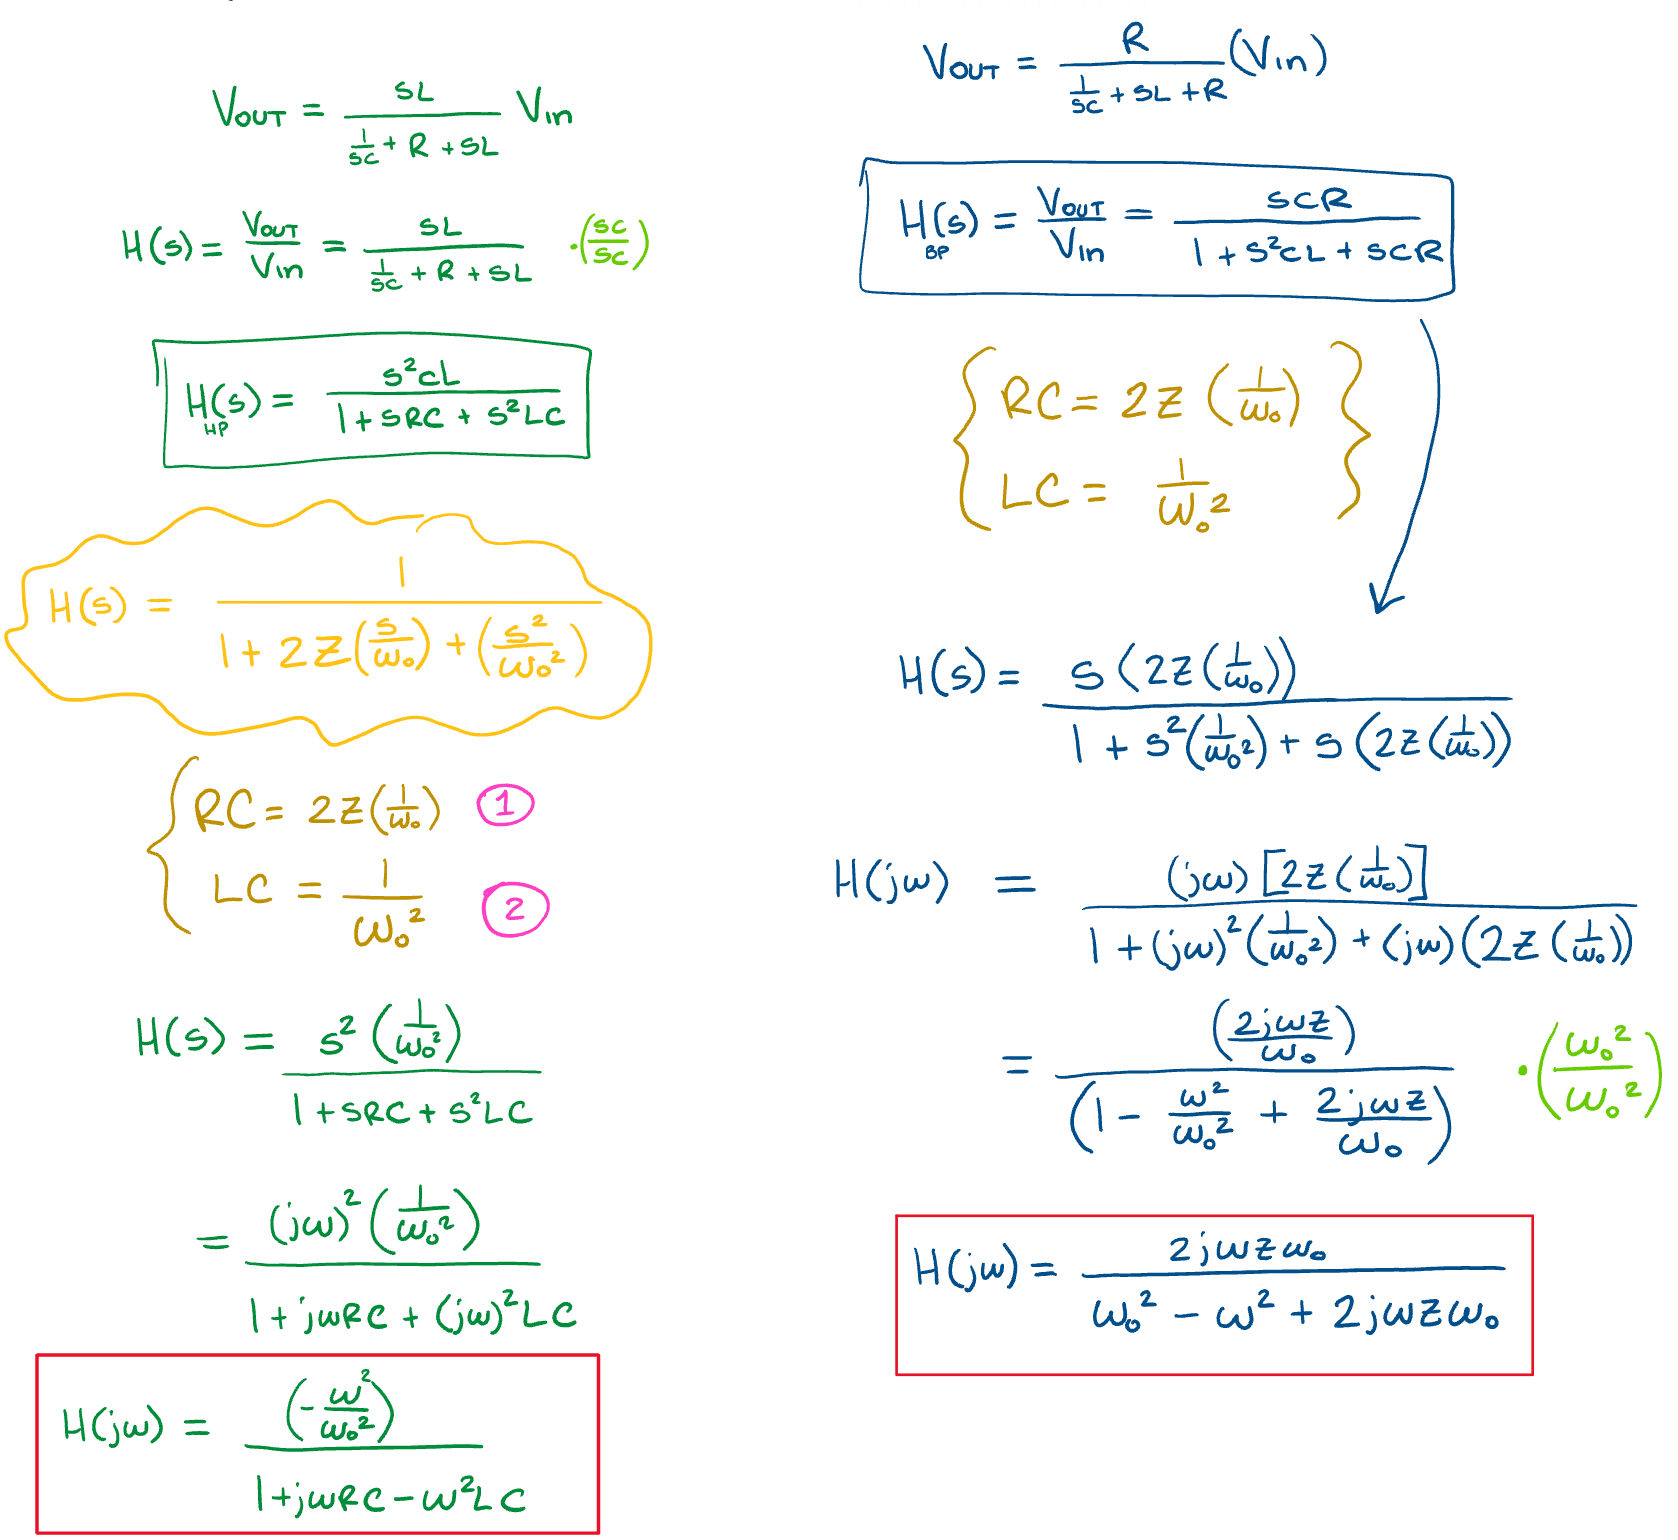 V_OUT = sL / (1/sC + R + sL) V_in
H(s) = V_OUT/V_in = sL / (1/sC + R + sL) · (sC/sC)
H(s)_HP = s²CL / (1 + sRC + s²LC)
H(s) = 1 / (1 + 2Z(s/ω₀) + (s²/ω₀²))
{ RC = 2Z(1/ω₀) ①
LC = 1/ω₀² ②
H(s) = s²(1/ω₀²) / (1 + sRC + s²LC)
= (jω)²(1/ω₀²) / (1 + jωRC + (jω)²LC)
H(jω) = (-ω²/ω₀²) / (1 + jωRC - ω²LC)
V_OUT = R / (1/sC + sL + R) (V_in)
H(s)_BP = V_OUT/V_in = sCR / (1 + s²CL + sCR)
{ RC = 2Z (1/ω₀)
LC = 1/ω₀² }
H(s) = s(2Z(1/ω₀)) / (1 + s²(1/ω₀²) + s(2Z(1/ω₀)))
H(jω) = (jω)[2Z(1/ω₀)] / (1 + (jω)²(1/ω₀²) + (jω)(2Z(1/ω₀)))
= (2jωZ/ω₀) / (1 - ω²/ω₀² + 2jωZ/ω₀) · (ω₀²/ω₀²)
H(jω) = 2jωZω₀ / (ω₀² - ω² + 2jωZω₀)